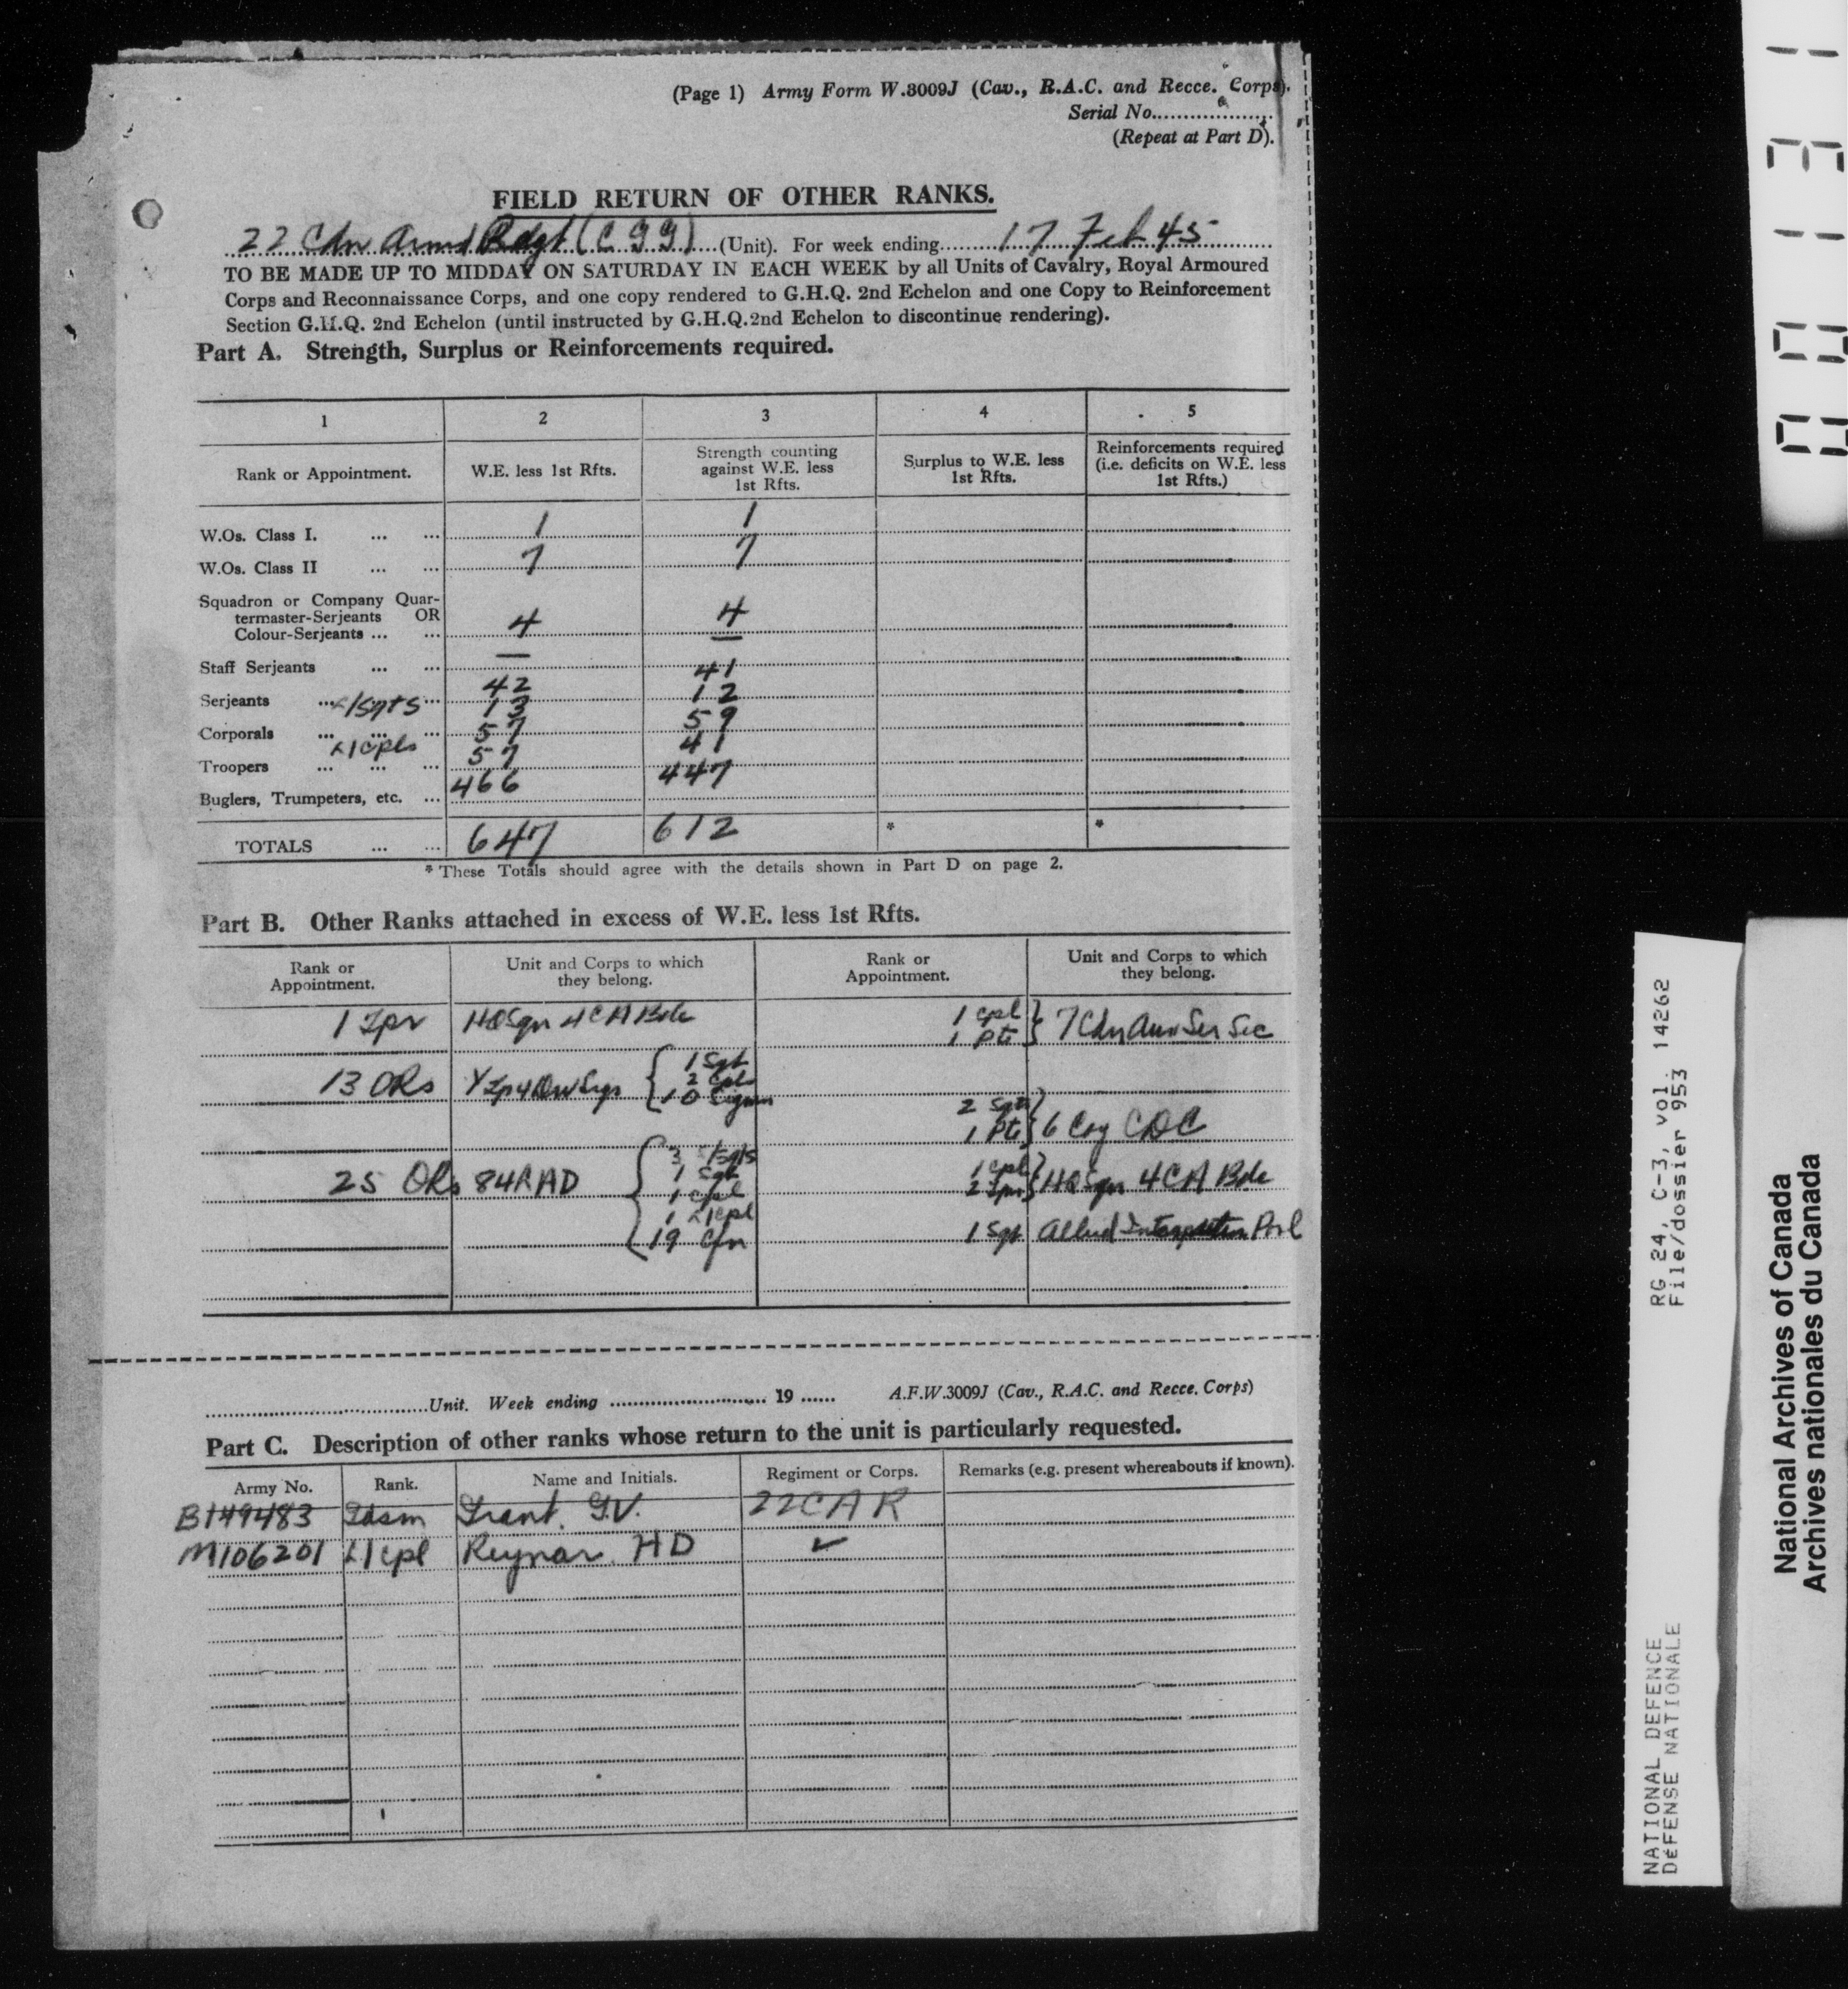 (Page 1) Army Form W.3009J (Cav., R.A.C. and Recce. Corps).
Serial No....................
(Repeat at Part D).
FIELD RETURN OF OTHER RANKS.
22 Cdn Armd Regt (C G G) (Unit). For week ending 17 Feb 45
TO BE MADE UP TO MIDDAY ON SATURDAY IN EACH WEEK by all Units of Cavalry, Royal Armoured
Corps and Reconnaissance Corps, and one copy rendered to G.H.Q. 2nd Echelon and one Copy to Reinforcement
Section G.H.Q. 2nd Echelon (until instructed by G.H.Q.2nd Echelon to discontinue rendering).
Part A. Strength, Surplus or Reinforcements required.
1 2 3 4 5
Rank or Appointment. W.E. less 1st Rfts. Strength counting against W.E. less 1st Rfts. Surplus to W.E. less 1st Rfts. Reinforcements required (i.e. deficits on W.E. less 1st Rfts.)
W.Os. Class I. ... ... 1 1
W.Os. Class II ... ... 7 7
Squadron or Company Quar-
termaster-Serjeants OR
Colour-Serjeants ... ... 4 4
Staff Serjeants ... ... — —
Serjeants ... ... 42 41
L/Sgts 13 12
Corporals ... ... ... 57 59
L/Cpls 57 41
Troopers ... ... ... 466 447
Buglers, Trumpeters, etc. ...
TOTALS ... ... 647 612 * *
* These Totals should agree with the details shown in Part D on page 2.
Part B. Other Ranks attached in excess of W.E. less 1st Rfts.
Rank or Appointment. Unit and Corps to which they belong. Rank or Appointment. Unit and Corps to which they belong.
1 Tpr HQ Sqn 4 CA Bde
1 Cpl
1 Pte } 7 Cdn Aux Ser Sec
13 ORs Y Tp 4 Div Sigs { 1 Sgt
2 Cpls
10 Sigmn
2 Sgts
1 Pte } 6 Coy CDC
25 ORs 84 LAD { 3 S/Sgts
1 Sgt
1 Cpl
1 L/Cpl
19 Cfn
1 Cpl
2 Tprs } HQ Sqn 4 CA Bde
1 Sgt Allied Interpreters Pool
Unit. Week ending 19 ...... A.F.W.3009J (Cav., R.A.C. and Recce. Corps)
Part C. Description of other ranks whose return to the unit is particularly requested.
Army No. Rank. Name and Initials. Regiment or Corps. Remarks (e.g. present whereabouts if known).
B149483 Gdsm Grant. G.V. 22 C A R
M106201 L/Cpl Reynar. H D ✓
00131
RG 24, C-3, vol. 14262
File/dossier 953
NATIONAL DEFENCE
DÉFENSE NATIONALE
National Archives of Canada
Archives nationales du Canada